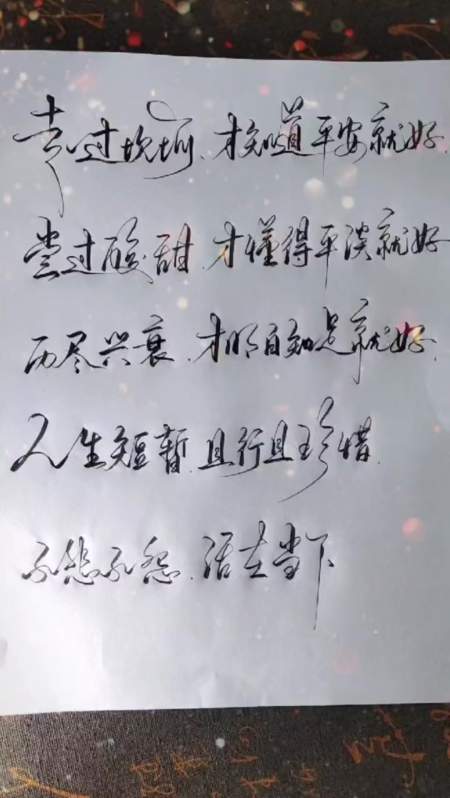 走过坎坷、才知道平安就好、
尝过酸甜、才懂得平淡就好
历尽兴衰、才明白知足就好、
人生短暂、且行且珍惜、
不愁不怨、活在当下